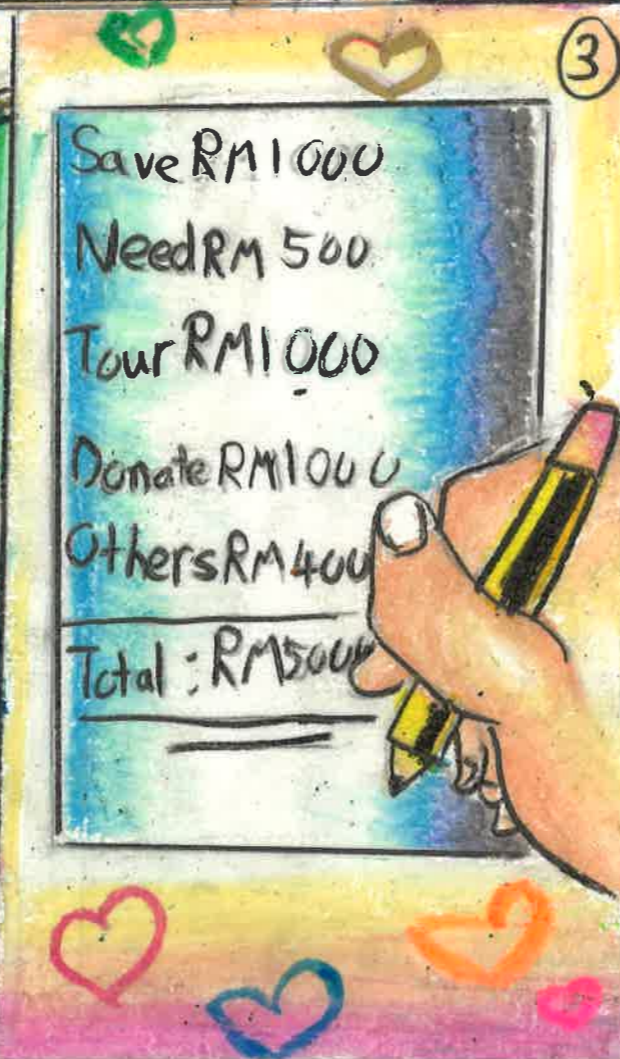 3
Save RM1000
Need RM 500
Tour RM1000
Donate RM1000
Others RM400
Total : RM5000